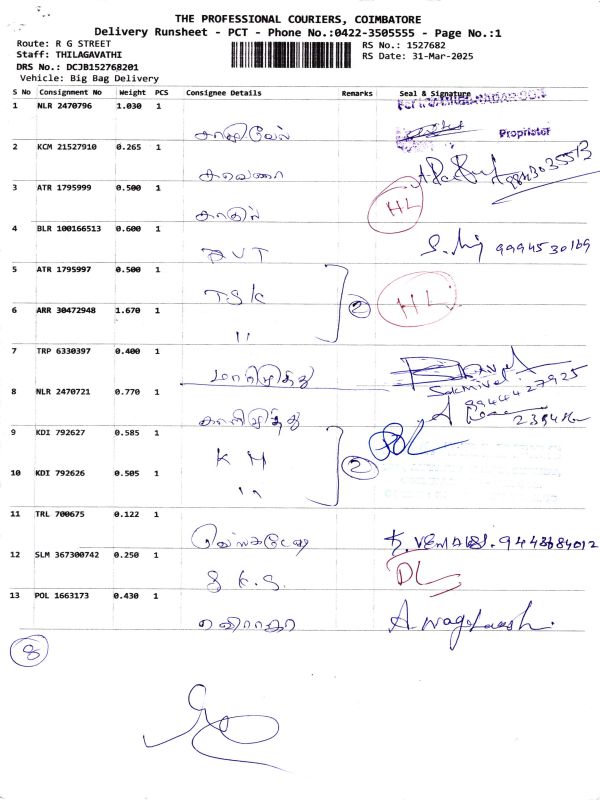 THE PROFESSIONAL COURIERS, COIMBATORE
Delivery Runsheet - PCT - Phone No.:0422-3505555 - Page No.:1
Route: R G STREET
RS No.: 1527682
Staff: THILAGAVATHI
RS Date: 31-Mar-2025
DRS No.: DCJB152768201
Vehicle: Big Bag Delivery
S No Consignment No Weight PCS Consignee Details Remarks Seal & Signature
1 NLR 2470796 1.030 1
Proprietor
2 KCM 21527910 0.265 1
3 ATR 1795999 0.500 1
HL
4 BLR 100166513 0.600 1
9994530169
5 ATR 1795997 0.500 1
T.S.K
2
HL
6 ARR 30472948 1.670 1
"
7 TRP 6330397 0.400 1
மாரிமுத்து
Sakthivel
9944427925
8 NLR 2470721 0.770 1
காளிமுத்து
9 KDI 792627 0.585 1
K M
2
10 KDI 792626 0.505 1
"
11 TRL 700675 0.122 1
12 SLM 367300742 0.250 1
S K.S.
DL
13 POL 1663173 0.430 1
8